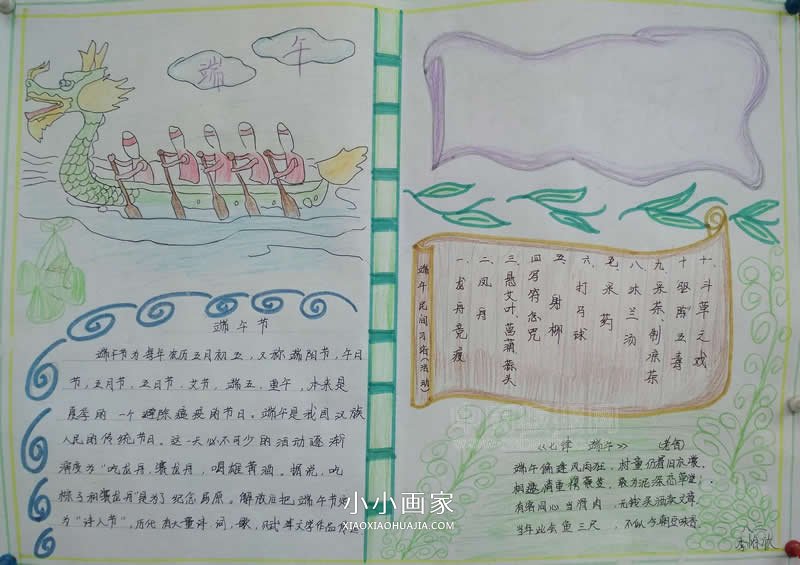 端午
端午节
端午节为每年农历五月初五，又称端阳节，午日
节，五月节，五日节，艾节，端五，重午，
夏季的一个驱除瘟疫的节日。端午是我国汉族
人民的传统节日。这一天必不可少的活动逐渐
演变为"吃龙舟，赛龙舟，喝雄黄酒，据说，吃
粽子和赛龙舟"是为了纪念屈原。解放后把端午节
为"诗人节"，历代有大量诗，词，歌，赋等文学作品
端午民间习俗（活动）
一、龙舟竞渡
二、凤舟
三、悬艾叶、菖蒲、蒜头
四、写符念咒
五、射柳
六、打马球
七、采药
八、水兰汤
九、采茶、制凉茶
十、驱除五毒
十一、斗草之戏
《七律 端午》 （老舍）
端午偏逢风雨狂，村童仍着旧衣裳，
相邀情重
有客同心当骨肉，无钱买酒卖文章，
当年此会鱼三尺，不似今朝豆味香。
小小画家
XIAOXIAOHUAJIA.COM